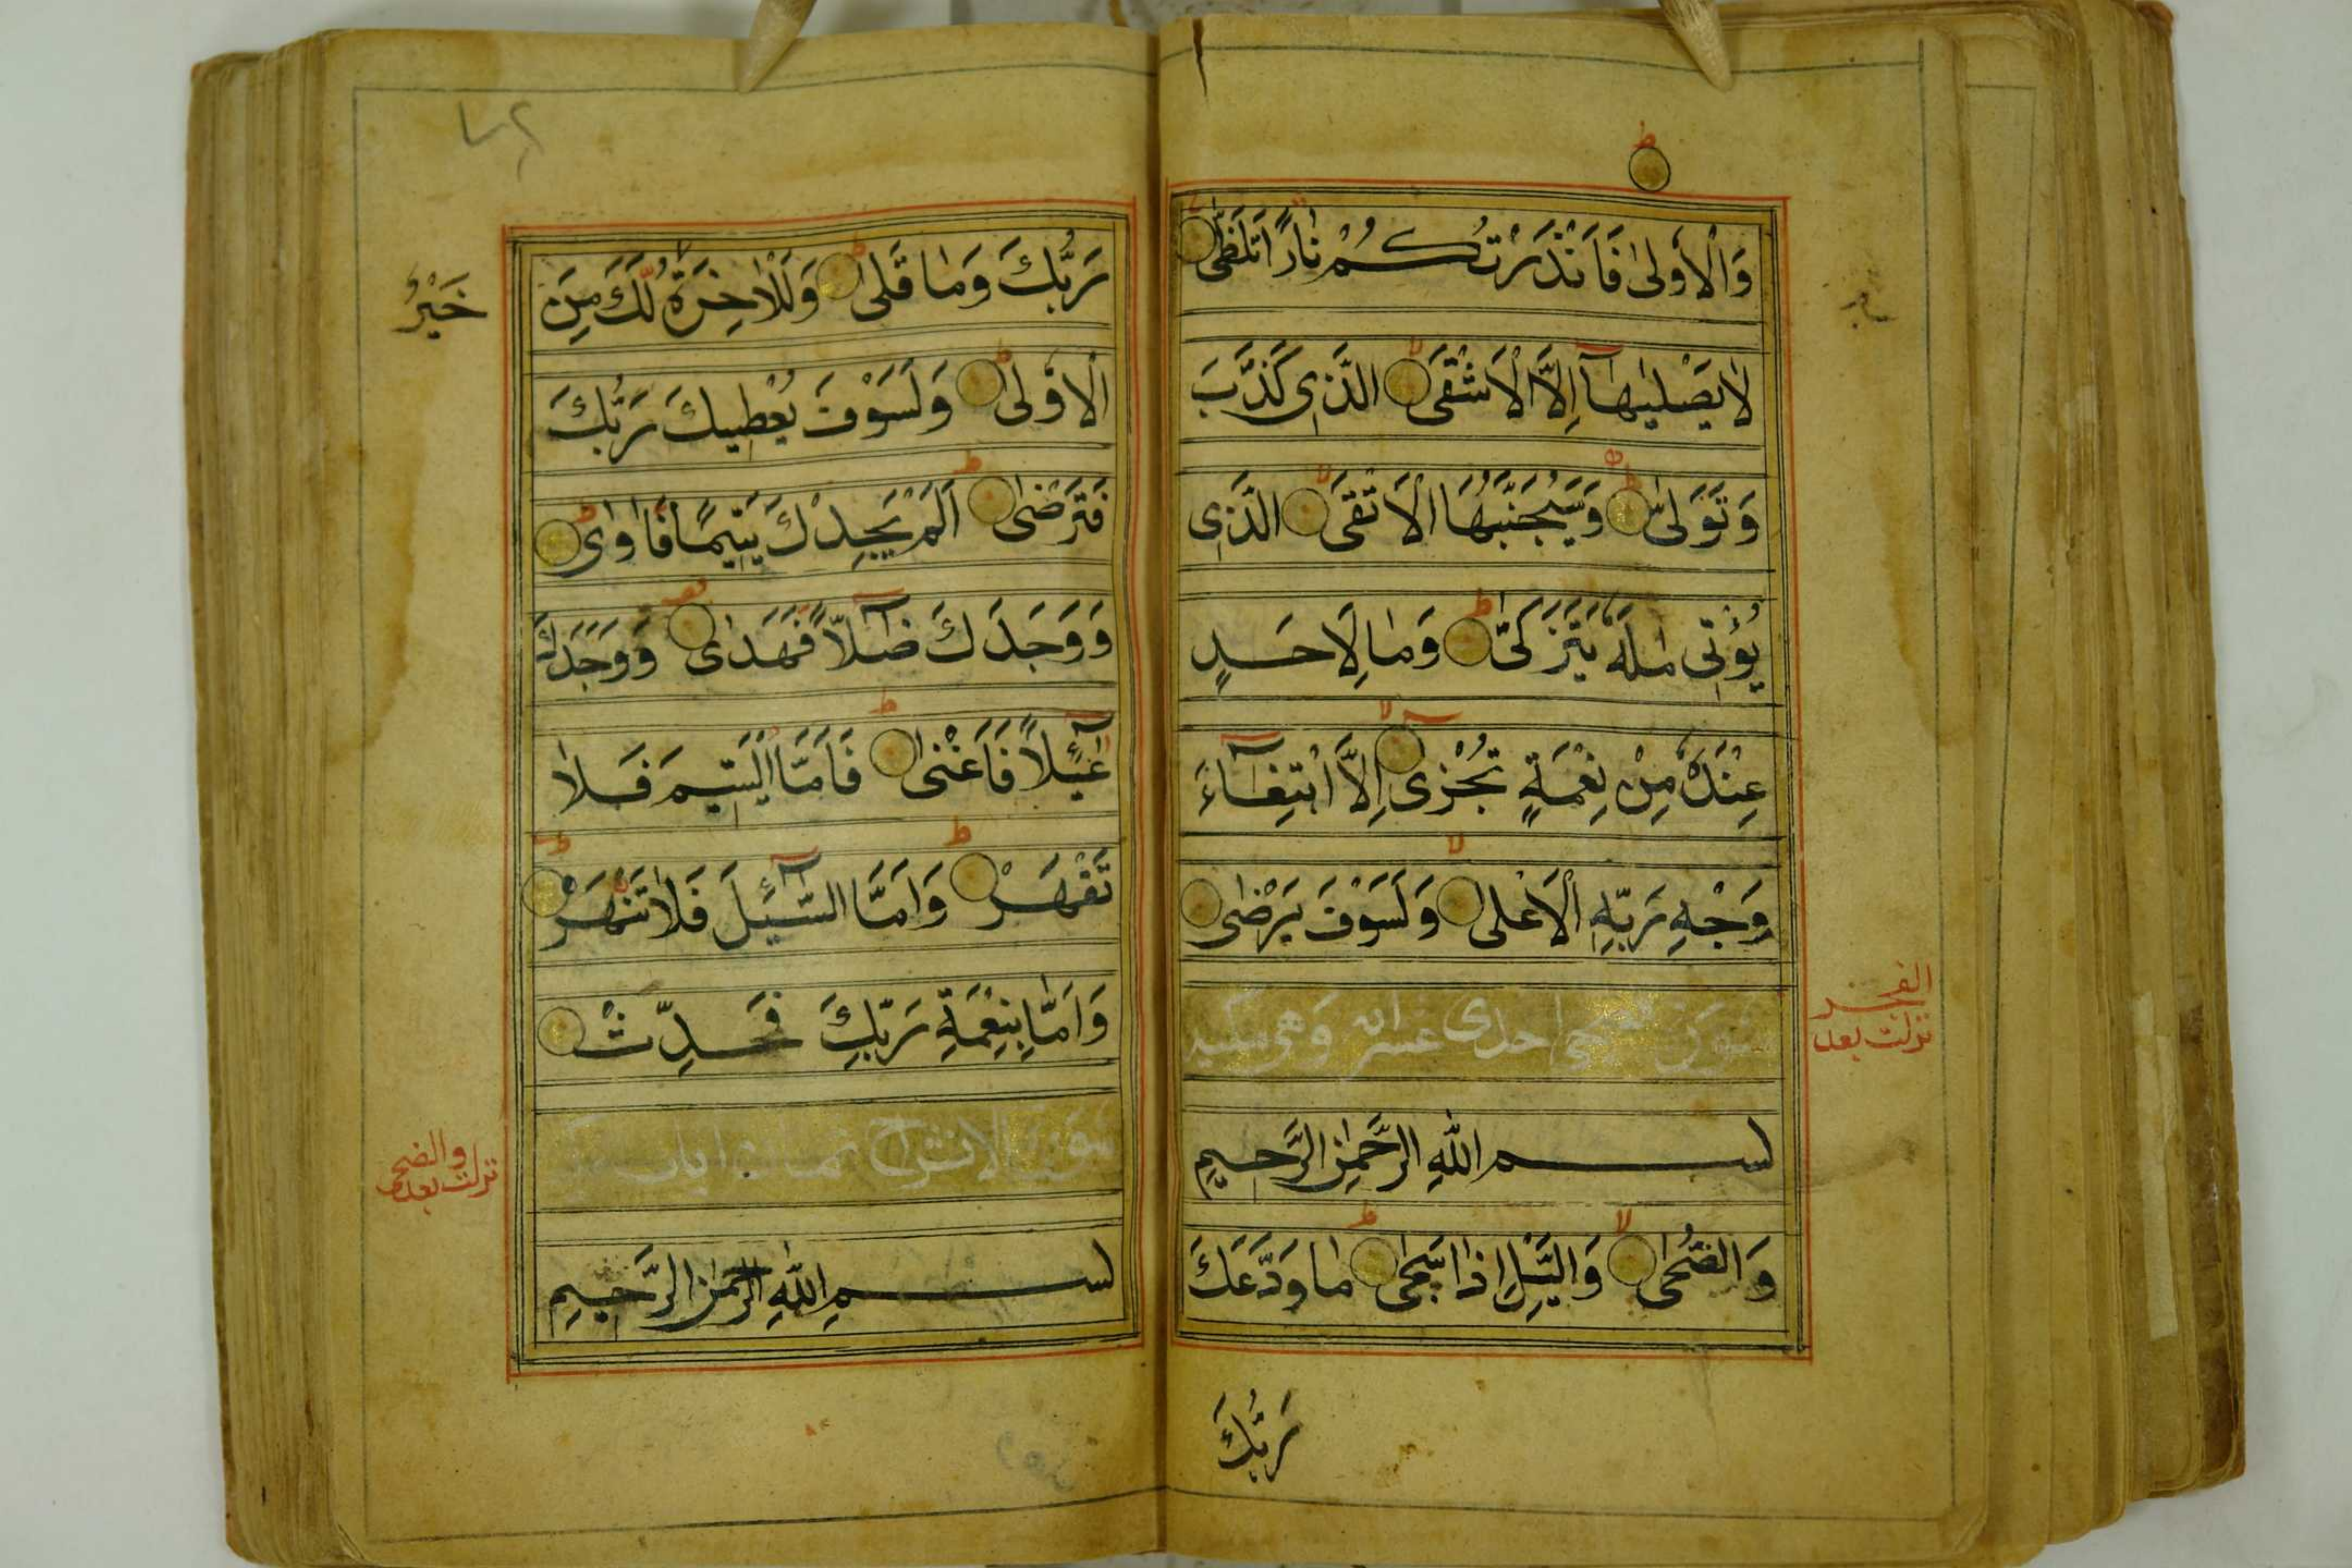 وَالْأُولىٰ فَاَنْذَرْتُكُمْ نَارًا تَلَظّٰى
لَا يَصْلٰيهَا اِلَّا الْاَشْقَى الَّذِى كَذَّبَ
وَتَوَلّٰى وَسَيُجَنَّبُهَا الْاَتْقَى الَّذِى
يُؤْتِى مَالَهُ يَتَزَكّٰى وَمَا لِاَحَدٍ
عِنْدَهُ مِنْ نِعْمَةٍ تُجْزٰى اِلَّا ابْتِغَآءَ
وَجْهِ رَبِّهِ الْاَعْلٰى وَلَسَوْفَ يَرْضٰى
سورة الضحى احدى عشر اية وهى مكية
الفجر
نزلت بعد
بسم اللّٰهِ الرَّحْمٰنِ الرَّحِيمِ
وَالضُّحٰى وَالَّيْلِ اِذَا سَجٰى مَا وَدَّعَكَ
رَبُّكَ
رَبُّكَ وَمَا قَلٰى وَلَلْاٰخِرَةُ خَيْرٌ لَّكَ مِنَ
الْاُولٰى وَلَسَوْفَ يُعْطِيكَ رَبُّكَ
فَتَرْضٰى اَلَمْ يَجِدْكَ يَتِيمًا فَاٰوٰى
وَوَجَدَكَ ضَآلًّا فَهَدٰى وَوَجَدَكَ
عَآئِلًا فَاَغْنٰى فَاَمَّا الْيَتِيمَ فَلَا
تَقْهَرْ وَاَمَّا السَّآئِلَ فَلَا تَنْهَرْ
وَاَمَّا بِنِعْمَةِ رَبِّكَ فَحَدِّثْ
سورة الانشراح ثمان ايات
والضحى
نزلت بعد
بسم اللّٰهِ الرَّحْمٰنِ الرَّحِيمِ